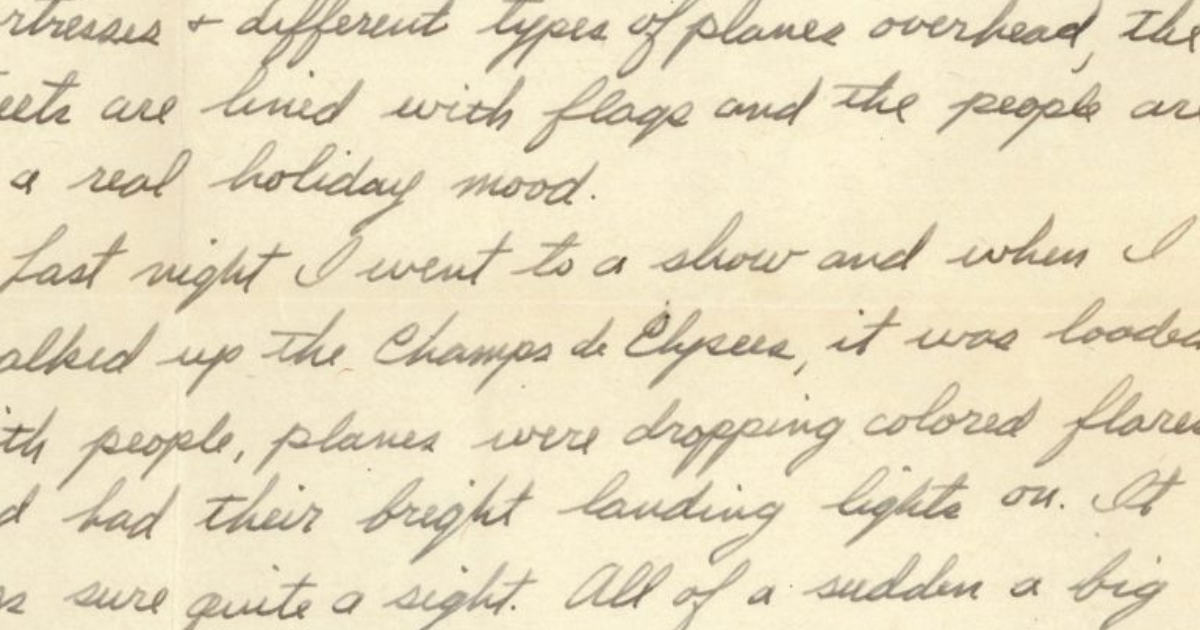 rtresses + different types of planes overhead, the
eets are lined with flags and the people are
a real holiday mood.
Last night I went to a show and when I
alked up the Champs de Elysees, it was loaded
ith people, planes were dropping colored flares
d had their bright landing lights on. It
as sure quite a sight. All of a sudden a big